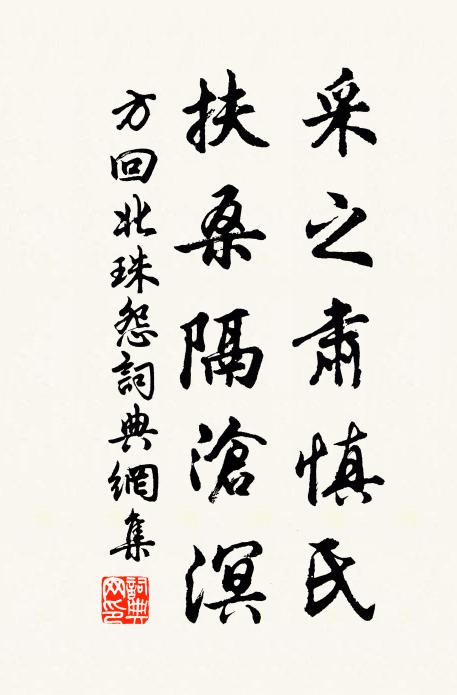 采之肅慎氏
扶桑隔滄溟
方回北珠怨詞典網集
詞典網印